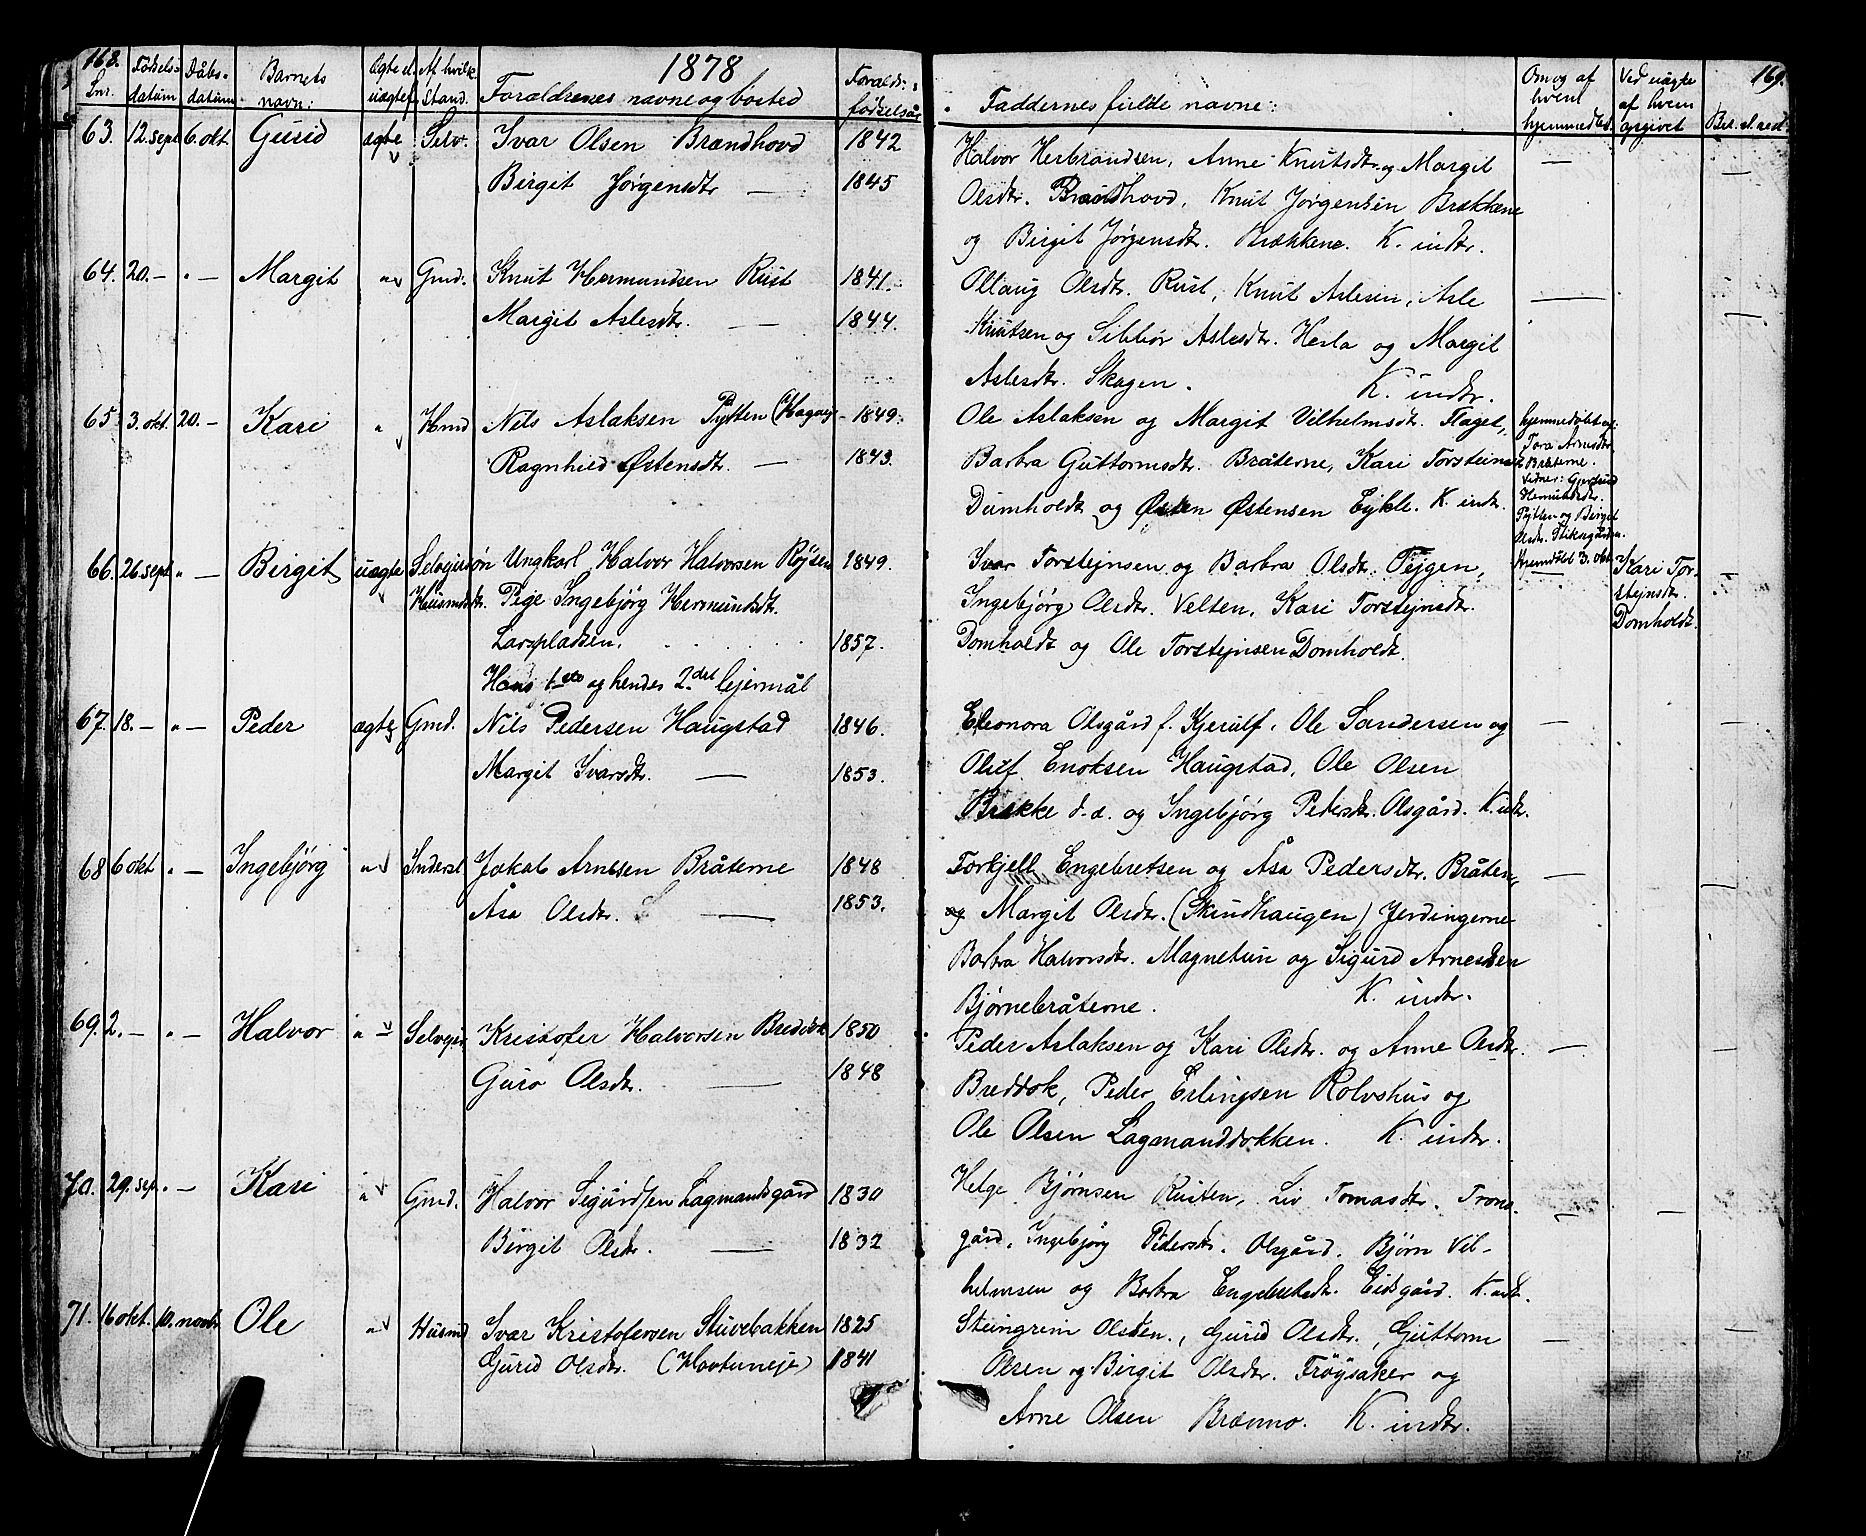 168.
1878
169.
Lnr. Fødsels-datum Dåbs-datum Barnets navn: Ægte el. uægte Af hvilk. Stand. Forældrenes navne og bosted Foralds: fødselsår
Faddernes fulde navne: Om og af hvem hjemmedøbt Ved uægte af hvem opgivet
63. 12. sept 6. okt. Gurid ægte Selv. Ivar Olsen Brændhovd 1842
Birgit Jørgensdtr — 1845
Halvor Herbrandsen, Anne Knutsdtr. og Margit —
Olsdtr. Brændhovd, Knut Jørgensen Brækkene
og Birgit Jørgensdtr. Brækkene. K. indtr.
64. 20. — " — Margit " Gmd. Knut Hermundsen Rust 1841.
Margit Aslesdtr. — 1844.
Ollaug Olsdtr. Rust, Knut Aslesen, Asle —
Knutsen og Sibbør Aslesdtr. Hesla og Margit
Aslesdtr. Skagen. K. indtr.
65. 3. okt. 20. — Kari " Hmd Nils Aslaksen Pytten (Hagaeje 1849.
Ragnhild Østensdtr. — 1843.
Ole Aslaksen og Margit Vilhelmsdtr. Flaget,
Barbra Guttormsdtr. Bråterne, Kari Torsteinsd
Dumholdt og Østen Østensen Eykle. K. indtr.
hjemmedøbt af:
Tora Arnsdtr
Bråterne.
Vidner: Gjertrud
Hermundsdtr.
Pytten og Birgit
Olsdtr.
Hjemdøbt 3. okt.
66. 26. sept " — Birgit uægte Selvejersøn Ungkarl Halvor Halvorsen Røjsen 1849.
Husmdsdtr. Pige Ingebjørg Hermundsdtr.
Larspladsen. 1857.
Hans 1ste og hendes 2det lejermål
Ivar Torstejnsen og Barbra Olsdtr. Tejgen,
Ingebjørg Olsdtr. Velten, Kari Torstejnsdtr.
Domholdt og Ole Torstejnsen Domholdt.
Kari Tor-
stejnsdtr.
Domholdt.
67. 18. — " — Peder ægte Gmd. Nils Pedersen Haugstad 1846.
Margit Ivarsdtr. — 1853.
Eleonora Olsgård f. Kjerulf, Ole Sandersen og —
Oluf Enoksen Haugstad, Ole Olsen
Brække d.æ. og Ingebjørg Pedersdtr. Olsgård. K. indtr.
68 6 okt " — Ingebjørg " Inderst Jakob Arnesen Bråterne 1848
Åsa Olsdtr. — 1853.
Torkjell Engebretsen og Åsa Pedersdtr. Bråten, —
og Margit Olsdtr. (Skindhaugen) Jerdingerne
Barbra Halvorsdtr. Magnetun og Sigurd Arnesen
Bjørnebråterne. K. indtr.
69. 2. — " — Halvor " — Selvejer Kristofer Halvorsen Breddok 1850
Guro Olsdtr. — 1848
Peder Aslaksen og Kari Olsdtr. og Anne Olsdtr. —
Breddok, Peder Erlingsen Rolvshus og
Ole Olsen Lagmanddokken. K. indtr.
70. 29. sep. " — Kari " Gmd. Halvor Sigurdsen Lagmandsgård 1830
Birgit Olsdtr. — 1832
Helge Bjørnsen Rusten, Liv Tomasdtr. Trons-
gård, Ingebjørg Pedersdtr. Olsgård. Bjørn Vil-
helmsen og Barbra Engebretsdtr. Eidsgård. K. indt.
71. 16 okt. 10. novbr Ole " Husmd Ivar Kristofersen Stuvebakken 1825
Gurid Olsdtr. (Hovtuneje) 1841
Steingrim Olsen, Gurid Olsdtr., Guttorm —
Olsen og Birgit Olsdtr. Frøysaker og
Arne Olsen Brænno. K. indtr.